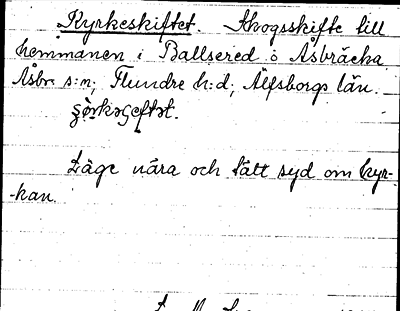 Kyrkeskiftet. Skogsskifte till
hemmanen i Ballsered o Åsbräcka
Åsbr s:n; Flundre h:d; Älfsborgs län.

Läge nära och tätt syd om kyr-
-kan.